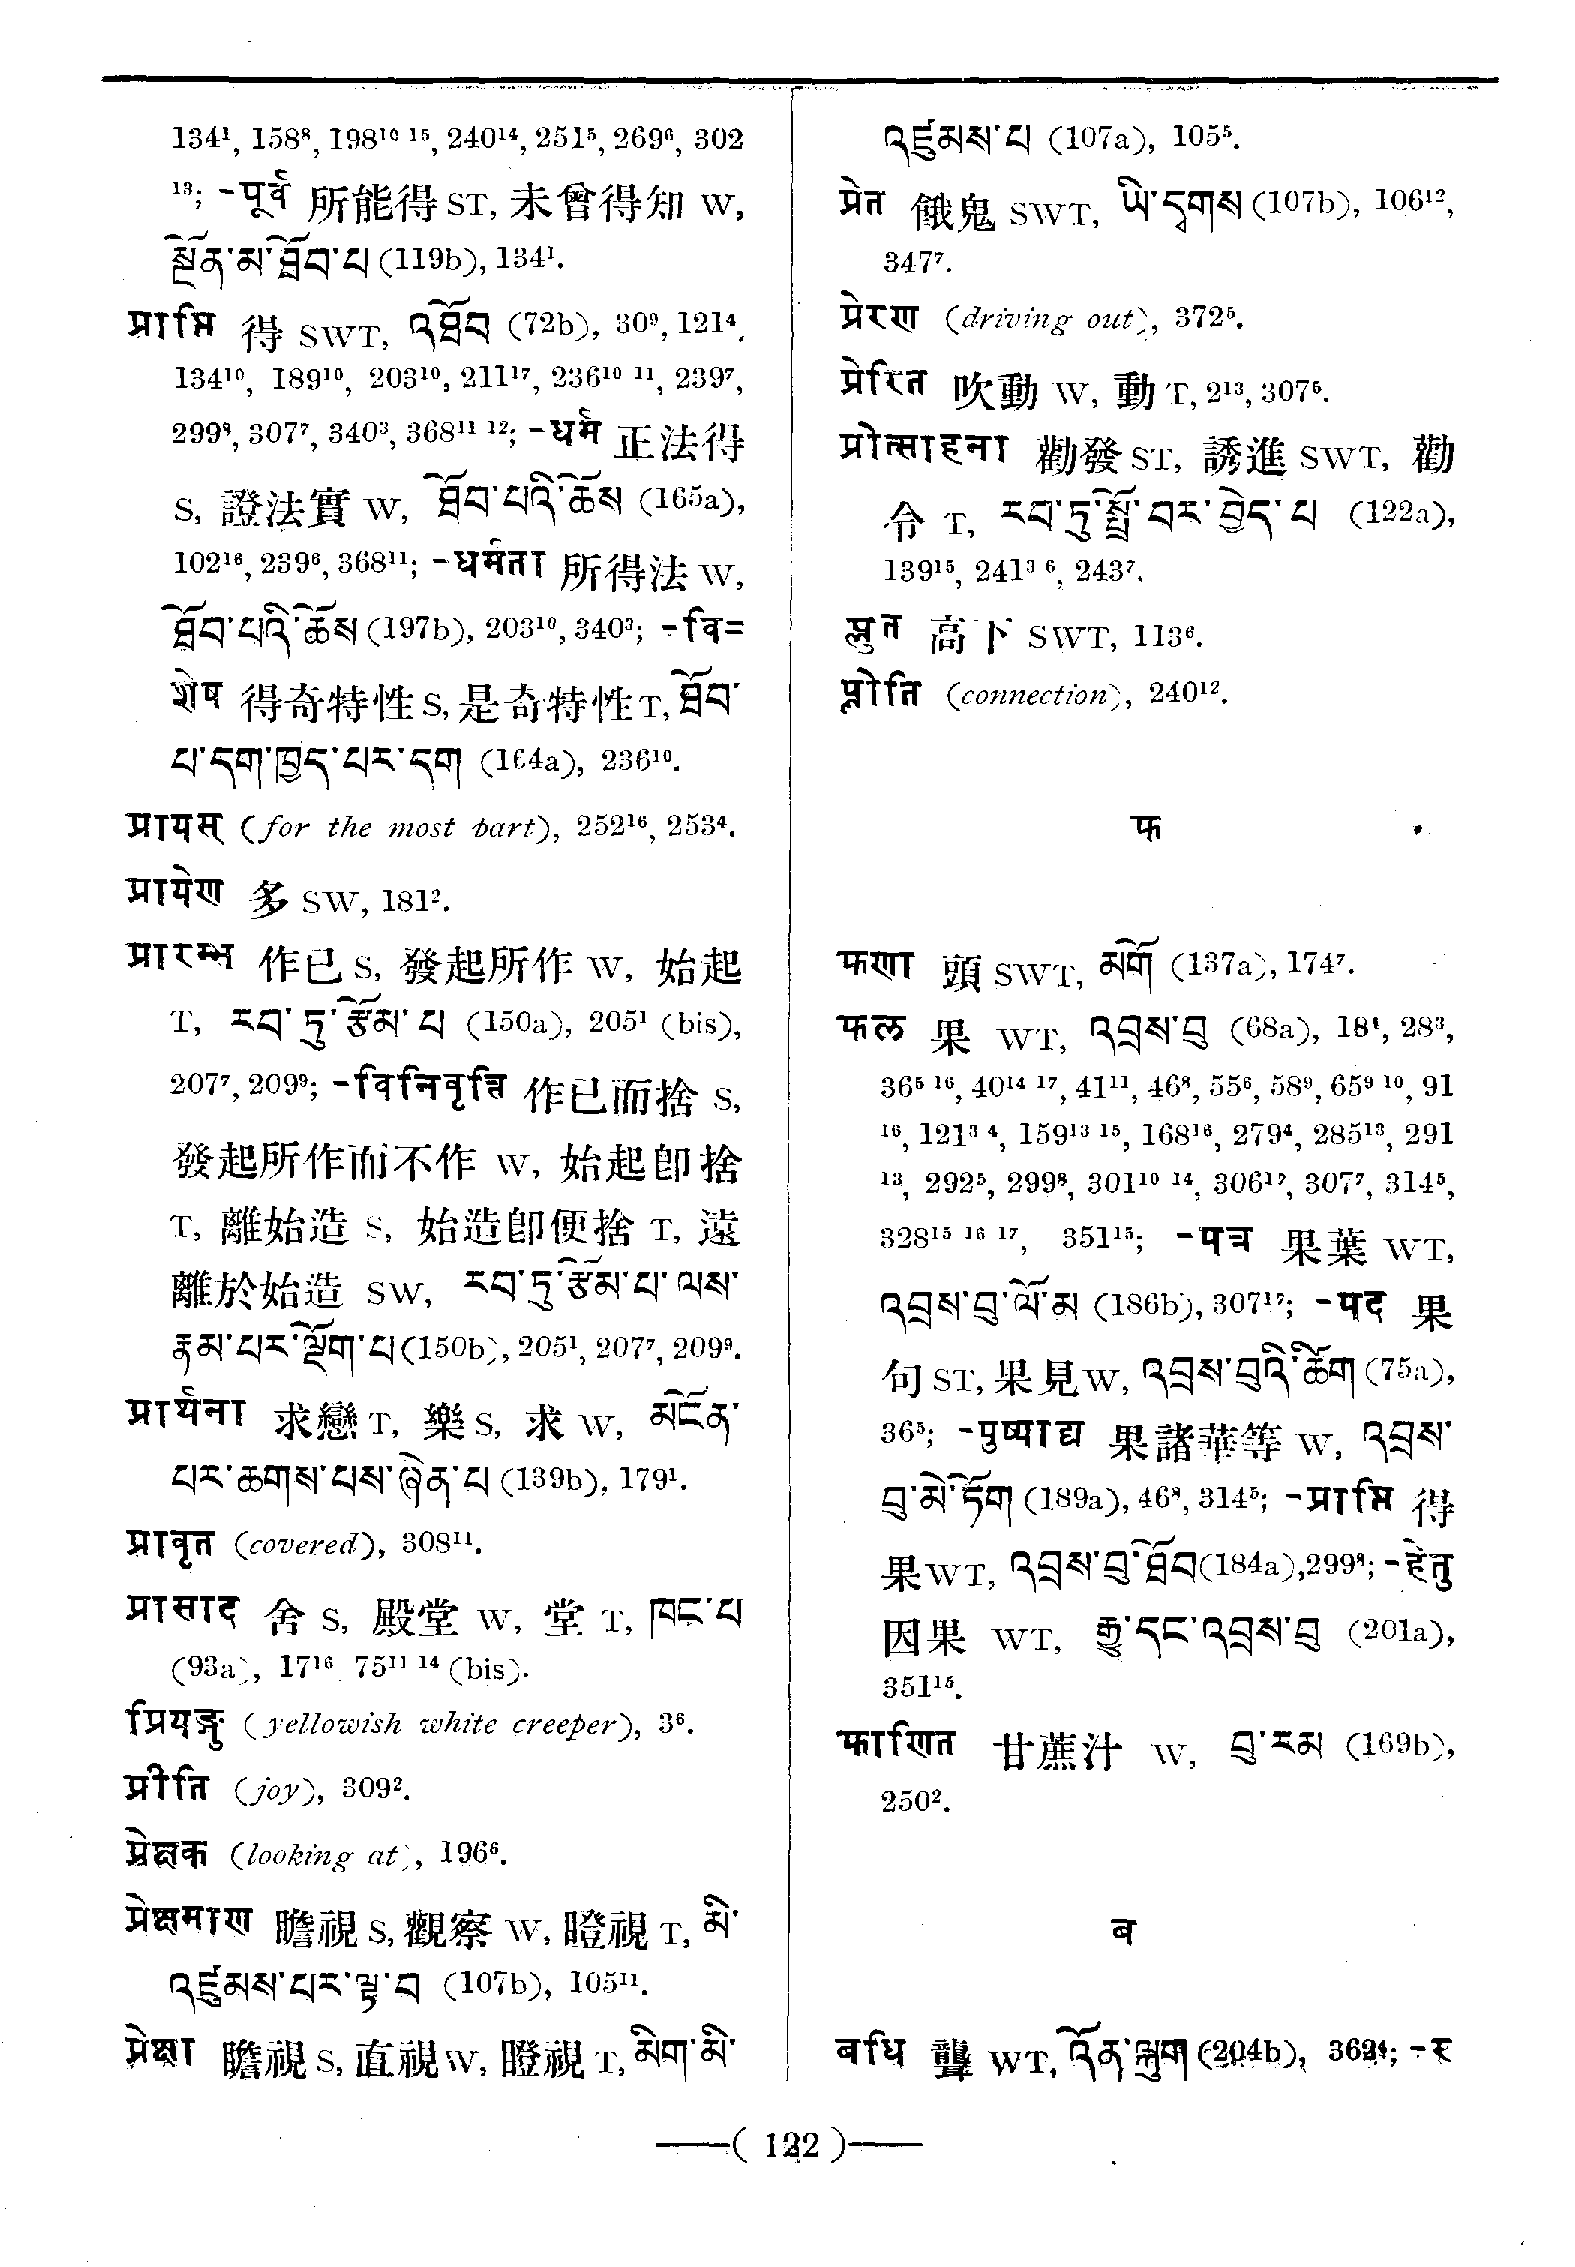 134¹, 158⁸, 198¹⁰ ¹⁵, 240¹⁴, 251⁵, 269⁶, 302
¹³; -पूर्व 所能得 ST, 未曾得知 W,
སྔོན་མ་ཐོབ་པ (119b), 134¹.
प्राप्ति 得 SWT, འཐོབ (72b), 30⁹, 121⁴,
134¹⁰, 189¹⁰, 203¹⁰, 211¹⁷, 236¹⁰ ¹¹, 239⁷,
299⁸, 307⁷, 340³, 368¹¹ ¹²; -धर्म 正法得
S, 證法實 W, ཐོབ་པའི་ཆོས (165a),
102¹⁶, 239⁶, 368¹¹; -धर्मता 所得法 W,
ཐོབ་པའི་ཆོས (197b), 203¹⁰, 340³; -वि=
शेष 得奇特性 S, 是奇特性 T, ཐོབ་
པ་དག་ཁྱད་པར་དག (164a), 236¹⁰.
प्रायस् (for the most part), 252¹⁶, 253⁴.
प्रायेण 多 SW, 181².
प्रारम्भ 作已 S, 發起所作 W, 始起
T, རབ་ཏུ་རྩོམ་པ (150a), 205¹ (bis),
207⁷, 209⁹; -विनिवृत्ति 作已而捨 S,
發起所作而不作 W, 始起卽捨
T, 離始造 S, 始造卽便捨 T, 遠
離於始造 SW, རབ་ཏུ་རྩོམ་པ་ལས་
རྣམ་པར་ལྡོག་པ (150b), 205¹, 207⁷, 209⁹.
प्रार्थना 求戀 T, 樂 S, 求 W, མངོན་
པར་ཆགས་པས་ཞེན་པ (139b), 179¹.
प्रावृत (covered), 308¹¹.
प्रासाद 舍 S, 殿堂 W, 堂 T, ཁང་པ
(93a), 17¹⁶, 75¹¹ ¹⁴ (bis).
प्रियङ्गु (yellowish white creeper), 3⁶.
प्रीति (joy), 309².
प्रेक्षक (looking at), 196⁶.
प्रेक्षमाण 瞻視 S, 觀察 W, 瞪視 T, མི་
འཛུམས་པར་ལྟ་བ (107b), 105¹¹.
प्रेक्षा 瞻視 S, 直視 W, 瞪視 T, མིག་མི་
འཛུམས་པ (107a), 105⁵.
प्रेत 餓鬼 SWT, ཡི་དྭགས (107b), 106¹²,
347⁷.
प्रेरण (driving out), 372⁵.
प्रेरित 吹動 W, 動 T, 2¹³, 307⁶.
प्रोत्साहना 勸發 ST, 誘進 SWT, 勸
令 T, རབ་ཏུ་སྤྲོ་བར་བྱེད་པ (122a),
139¹⁵, 241³ ⁶, 243⁷.
प्लुत 高下 SWT, 113⁶.
प्लोति (connection), 240¹².
फ
फणा 頭 SWT, མགོ (137a), 174⁷.
फल 果 WT, འབྲས་བུ (68a), 18⁴, 28³,
36⁵ ¹⁶, 40¹⁴ ¹⁷, 41¹¹, 46⁸, 55⁶, 58⁹, 65⁹ ¹⁰, 91
¹⁶, 121³ ⁴, 159¹³ ¹⁵, 168¹⁶, 279⁴, 285¹³, 291
¹³, 292⁵, 299⁸, 301¹⁰ ¹⁴, 306¹⁷, 307⁷, 314⁵,
328¹⁵ ¹⁶ ¹⁷, 351¹⁵; -पत्र 果葉 WT,
འབྲས་བུ་ལོ་མ (186b), 307¹⁷; -पद 果
句 ST, 果見 W, འབྲས་བུའི་ཚིག (75a),
36⁵; -पुष्पाद्य 果諸華等 W, འབྲས་
བུ་མེ་ཏོག (189a), 46⁸, 314⁵; -प्राप्ति 得
果 WT, འབྲས་བུ་ཐོབ (184a), 299⁸; -हेतु
因果 WT, རྒྱུ་དང་འབྲས་བུ (201a),
351¹⁵.
फाणित 甘蔗汁 W, བུ་རམ (169b),
250².
ब
बधि 聾 WT, འོན་ལྐུག (204b), 362⁴; -र
—( 122 )—